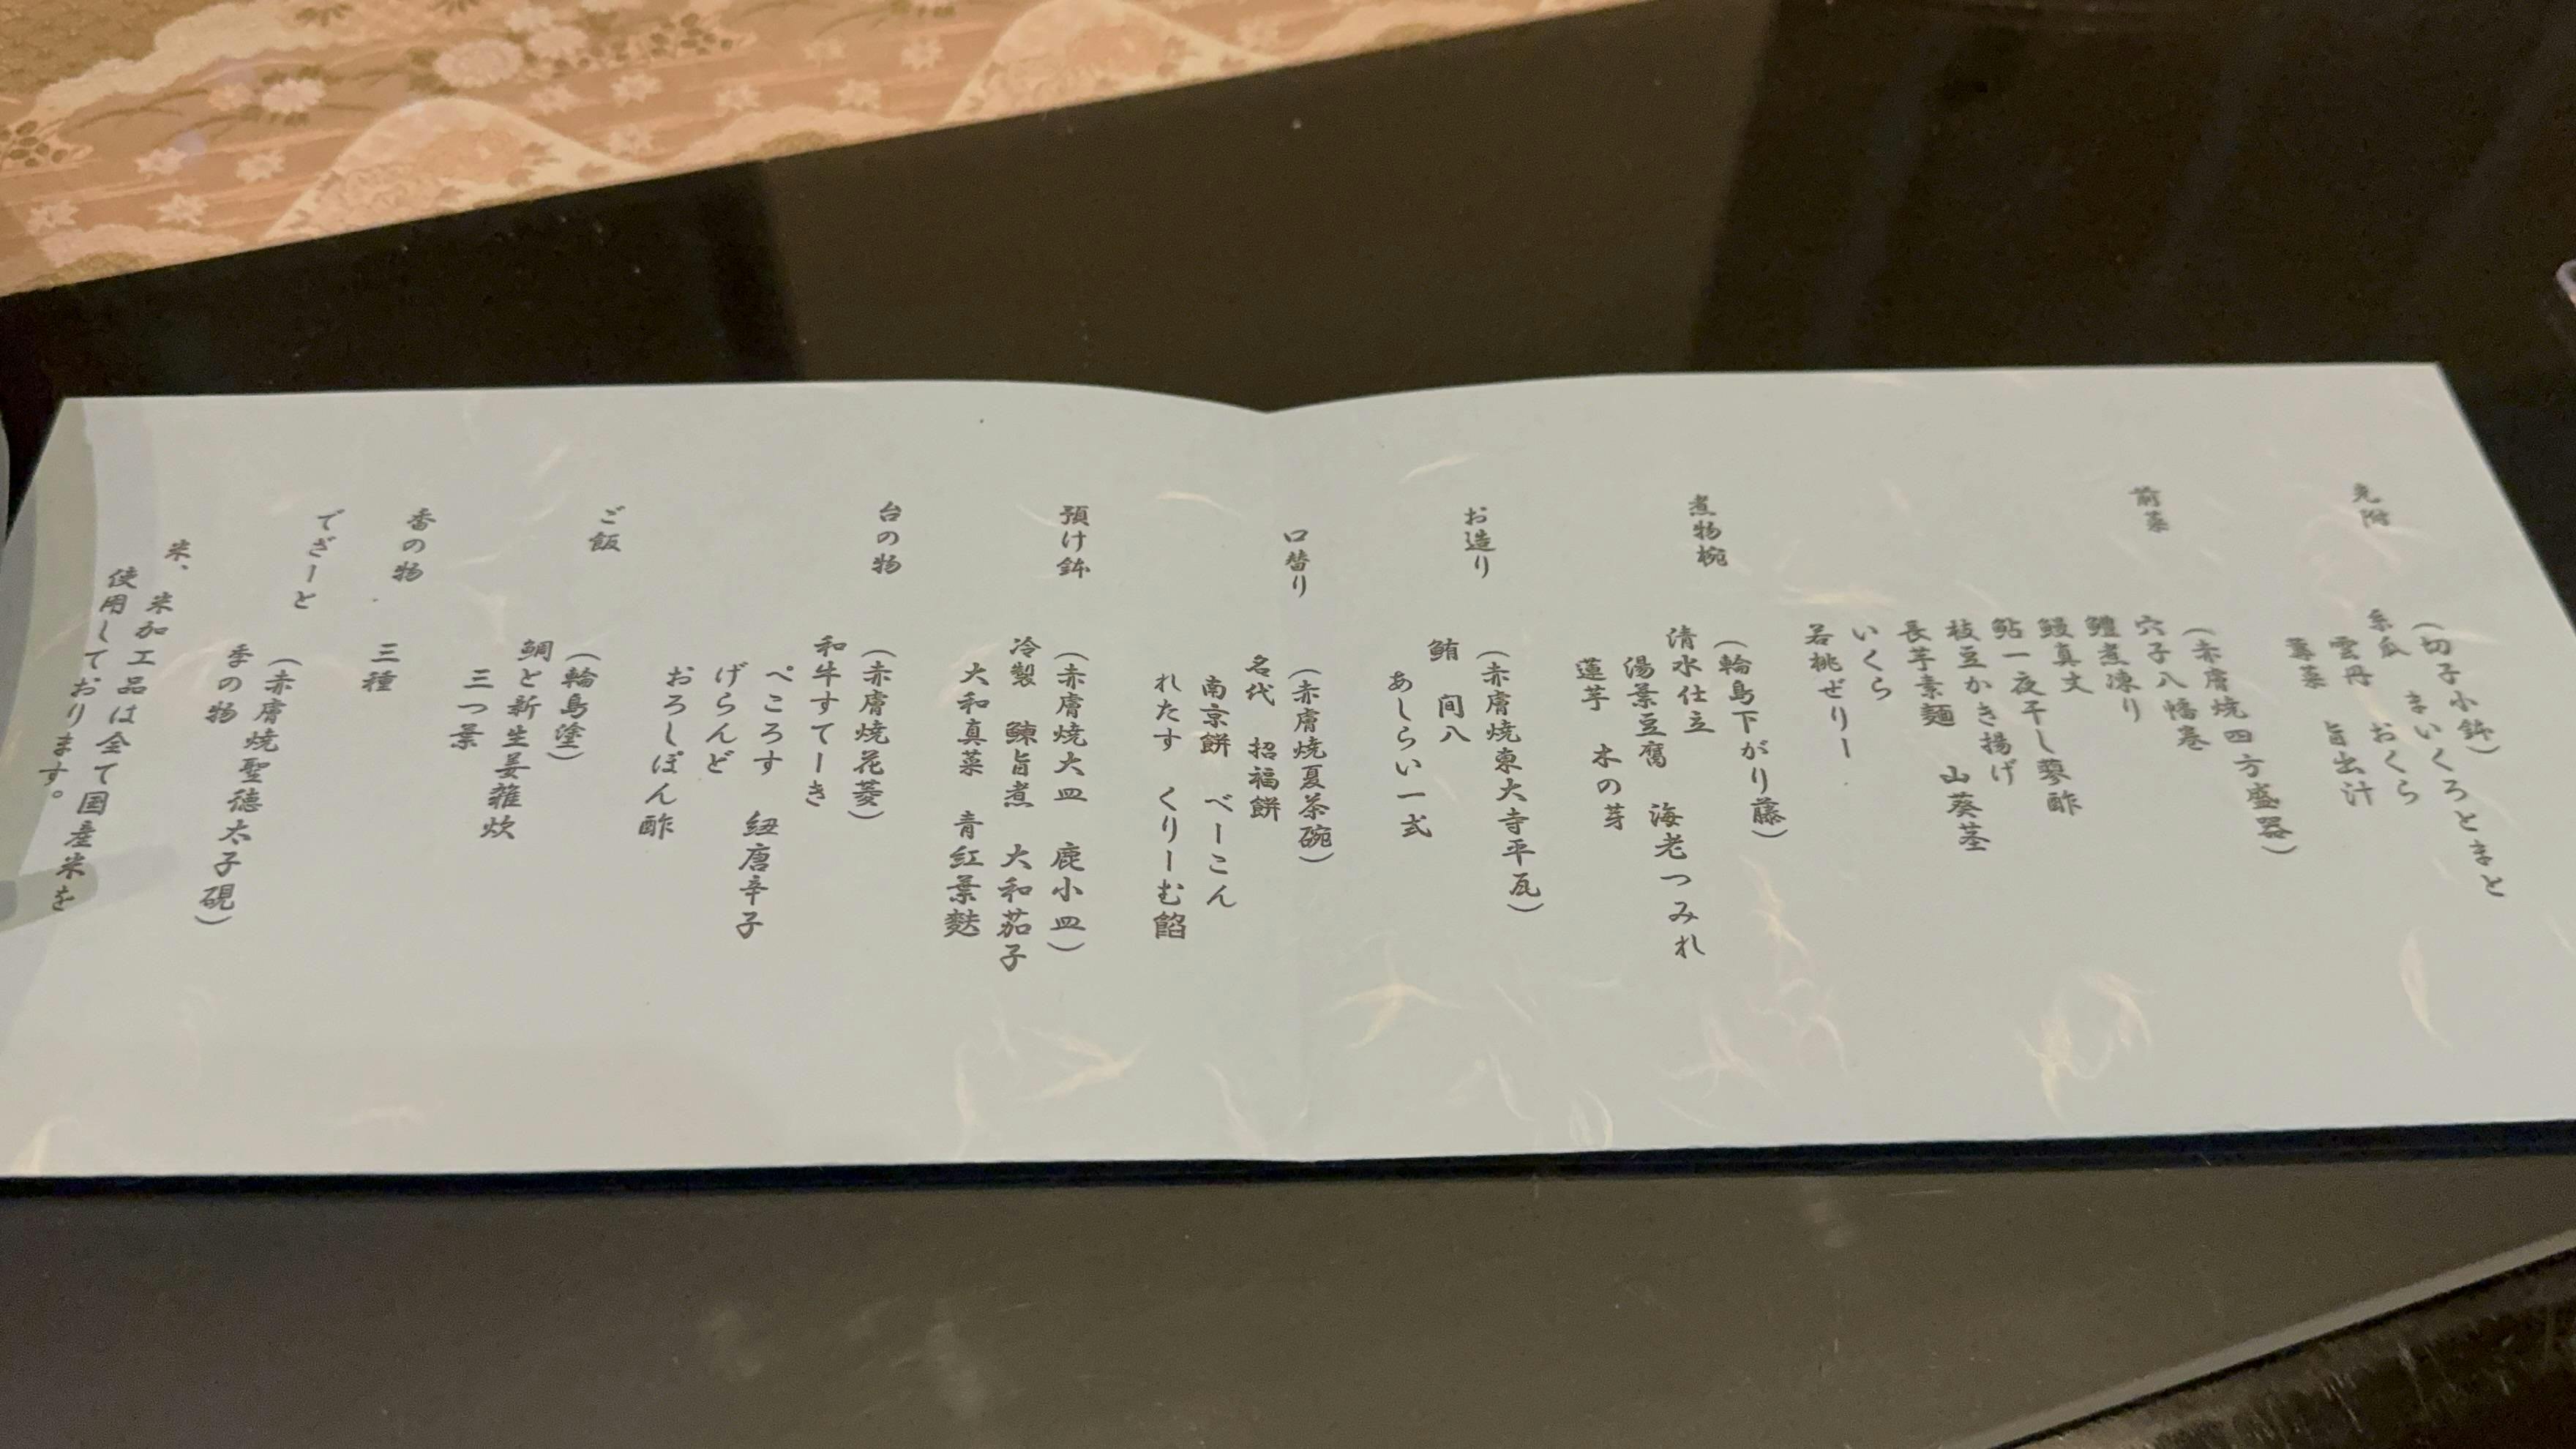 先附
（切子小鉢）
糸瓜　まいくろとまと
雲丹　おくら
蓴菜　旨出汁
前菜
（赤膚焼四方盛器）
穴子八幡巻
鱧煮凍り
鰻真丈
鮎一夜干し蓼酢
枝豆かき揚げ
長芋素麺　山葵茎
いくら
若桃ぜりー
煮物椀
（輪島下がり藤）
清水仕立
湯葉豆腐　海老つみれ
蓮芋　木の芽
お造り
（赤膚焼東大寺平瓦）
鮪　間八
あしらい一式
口替り
（赤膚焼夏茶碗）
名代　招福餅
南京餅　べーこん
れたす　くりーむ餡
預け鉢
（赤膚焼大皿　鹿小皿）
冷製　鰊旨煮　大和茄子
大和真菜　青紅葉麩
台の物
（赤膚焼花菱）
和牛すてーき
ぺころす　紐唐辛子
げらんど
おろしぽん酢
ご飯
（輪島塗）
鯛と新生姜雑炊
三つ葉
香の物
三種
でざーと
（赤膚焼聖徳太子硯）
季の物
米、米加工品は全て国産米を
使用しております。